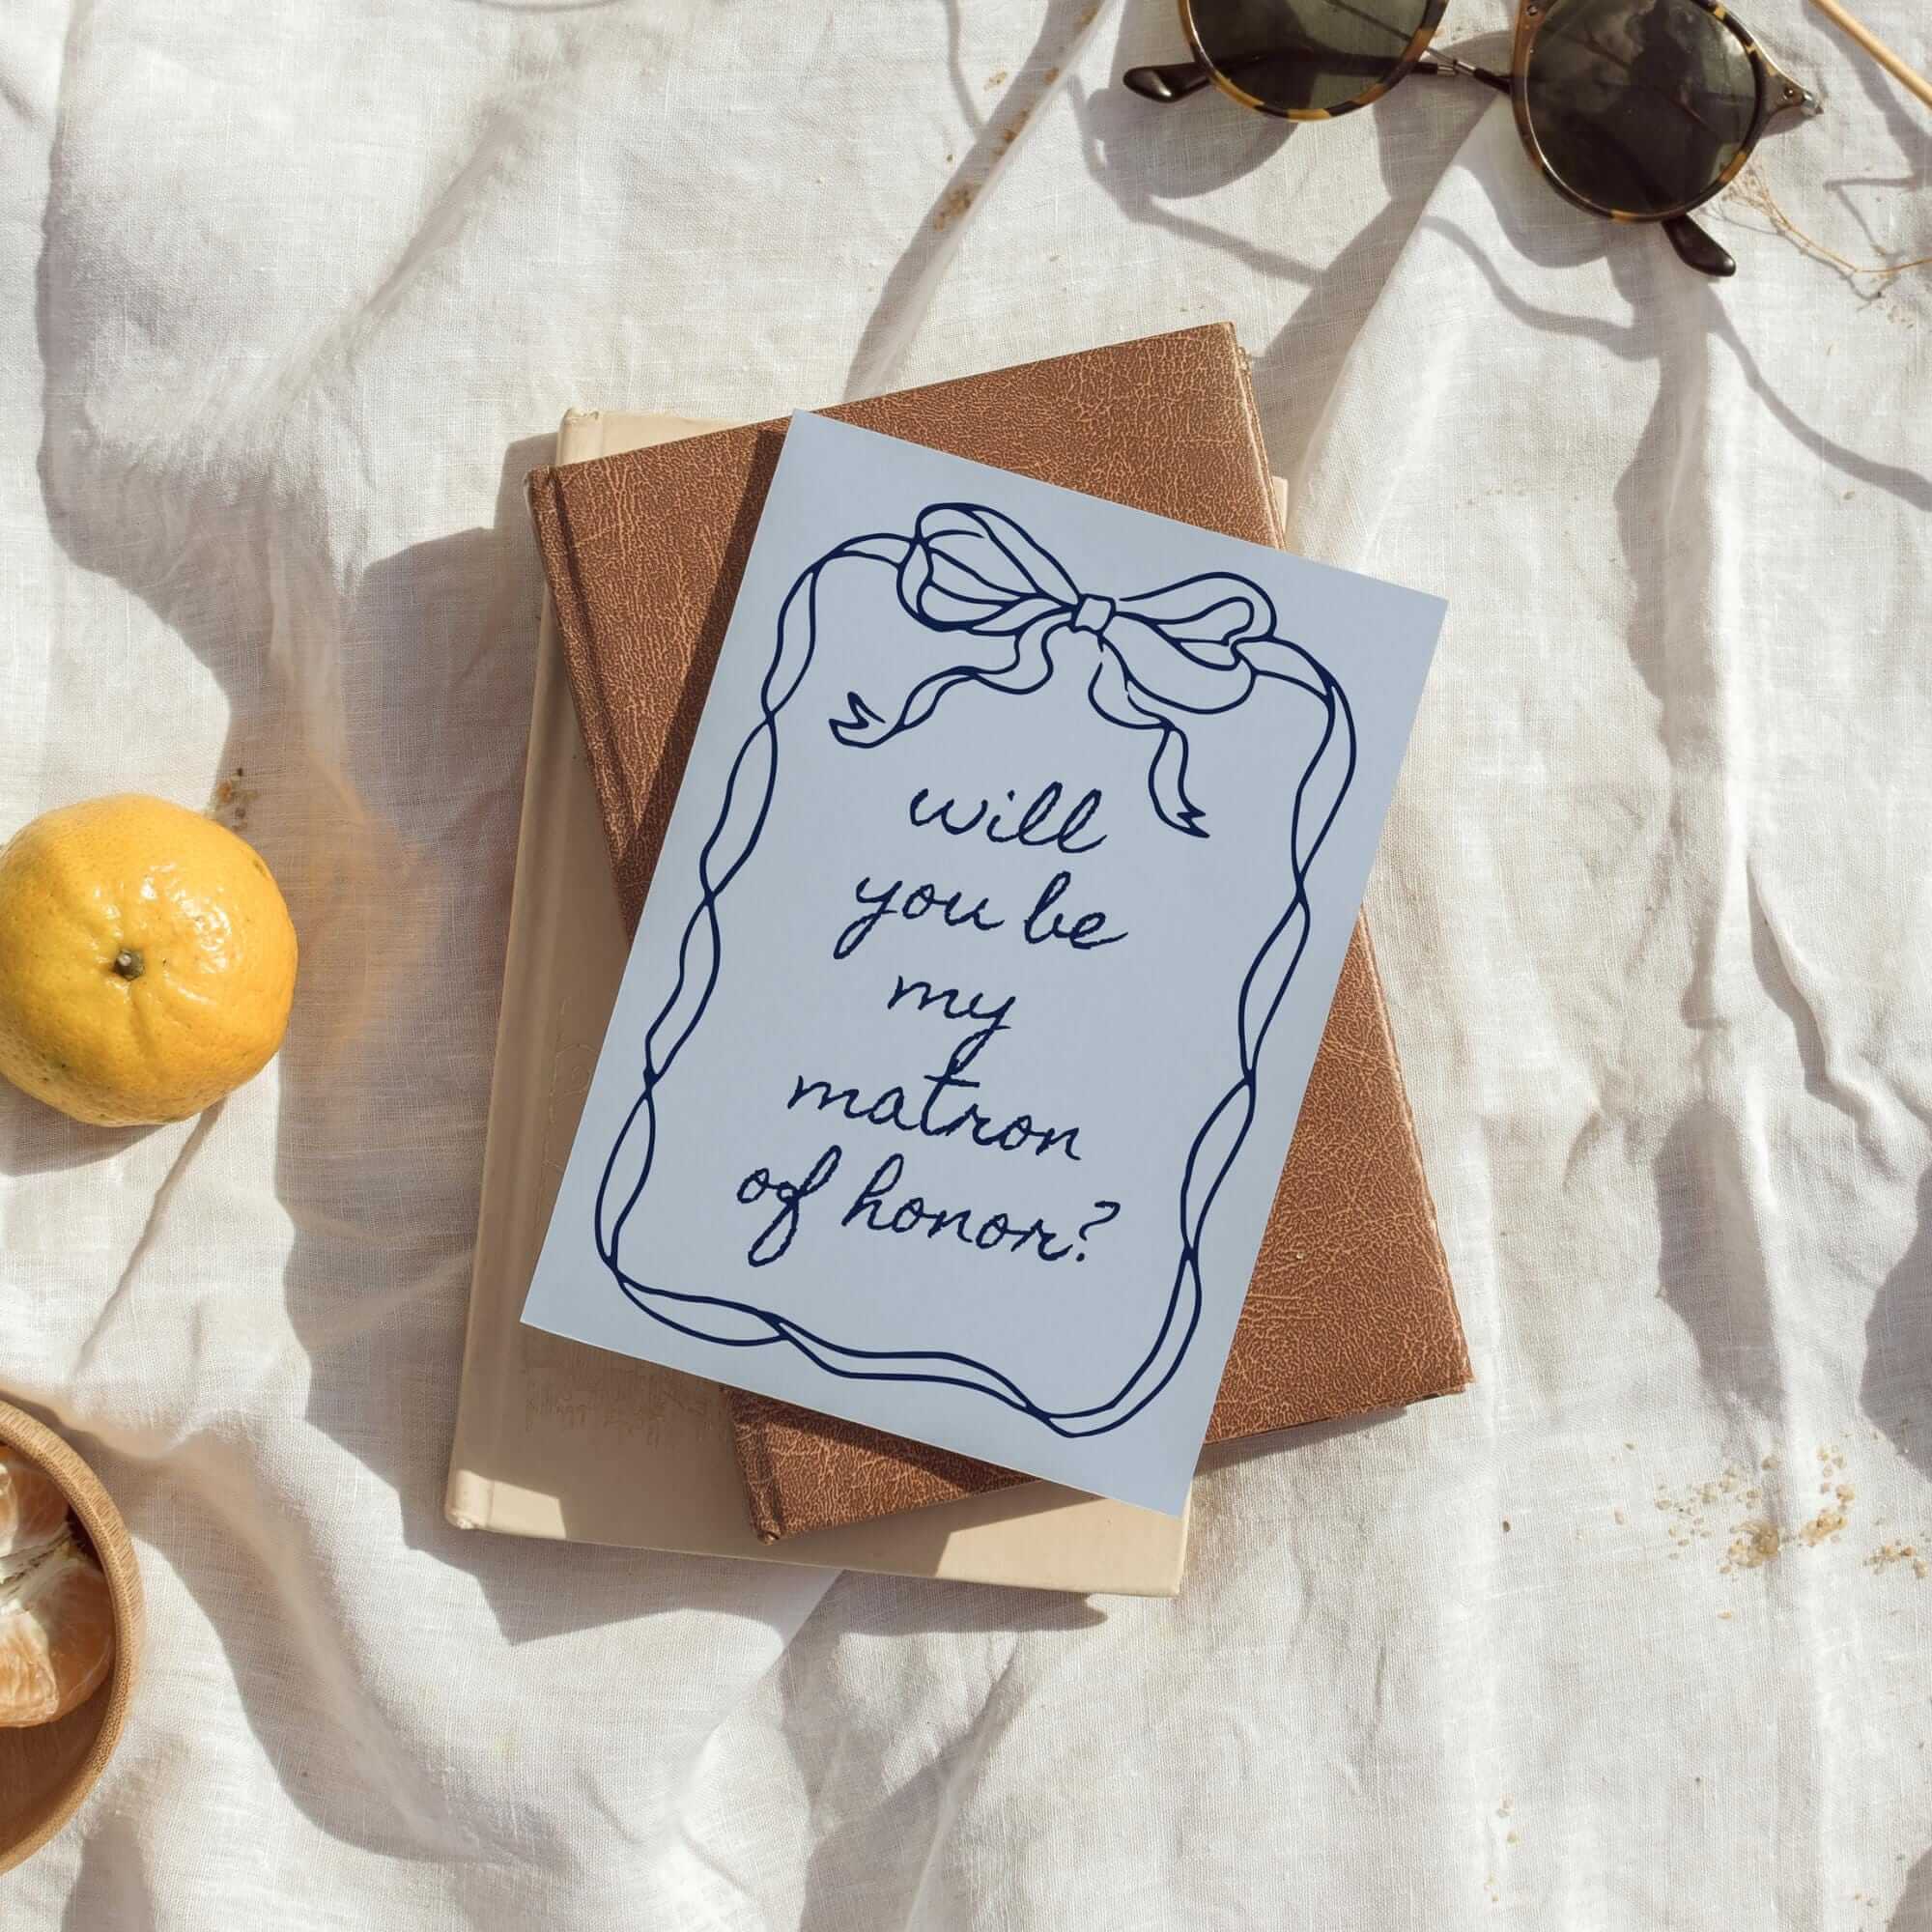 will
you be
my
matron
of honor?